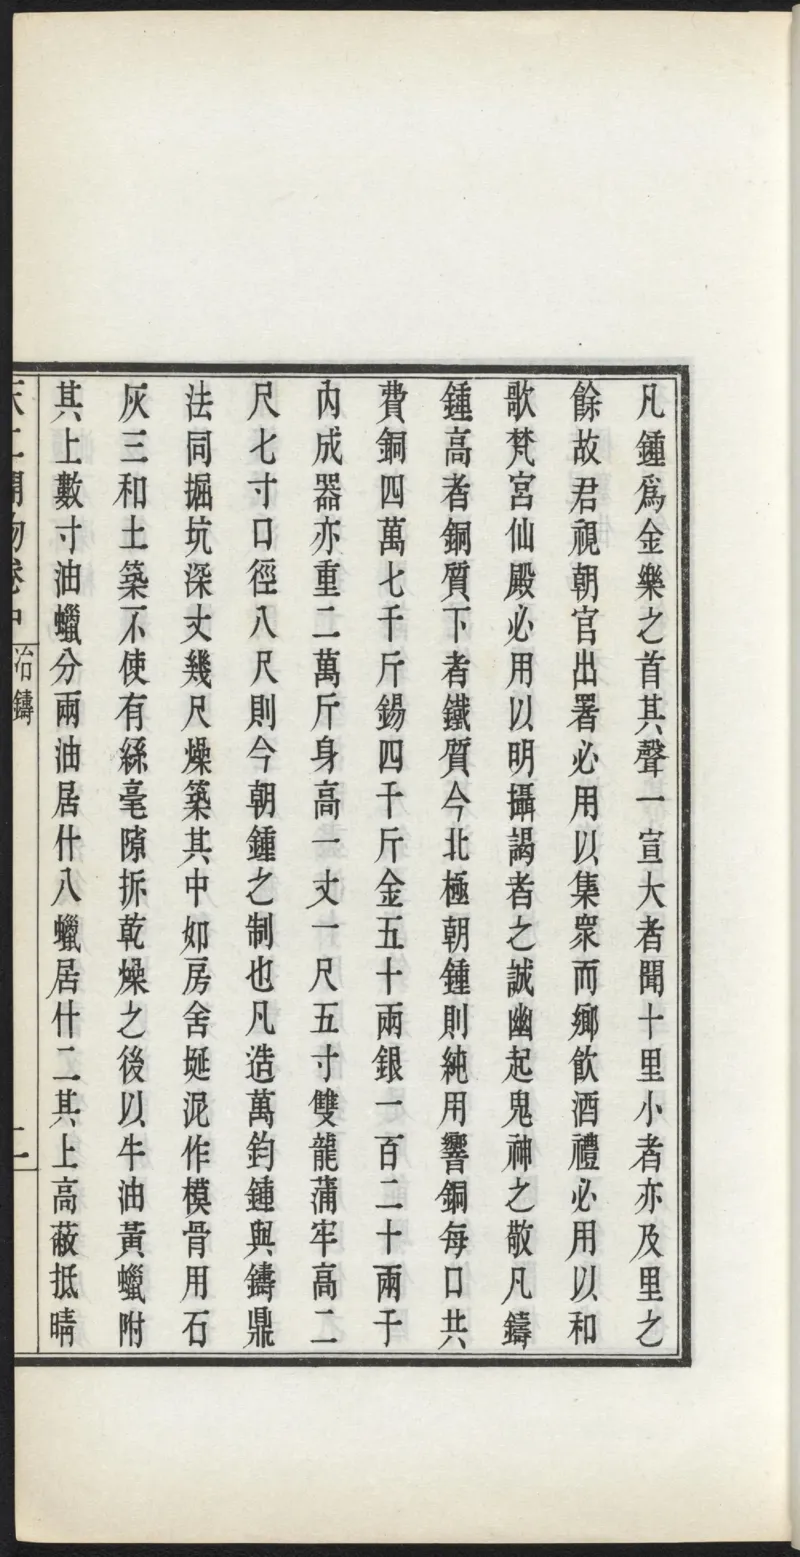 凡鍾爲金樂之首其聲一宣大者聞十里小者亦及里之
餘故君視朝官出署必用以集衆而鄉飲酒禮必用以和
歌梵宮仙殿必用以明攝謁者之誠幽起鬼神之敬凡鑄
鍾高者銅質下者鐵質今北極朝鍾則純用響銅每口共
費銅四萬七千斤錫四千斤金五十兩銀一百二十兩于
內成器亦重二萬斤身高一丈一尺五寸雙龍蒲牢高二
尺七寸口徑八尺則今朝鍾之制也凡造萬鈞鍾與鑄鼎
法同掘坑深丈幾尺燥築其中如房舍埏泥作模骨用石
灰三和土築不使有絲毫隙拆乾燥之後以牛油黃蠟附
其上數寸油蠟分兩油居什八蠟居什二其上高蔽抵晴
天工開物卷中 冶鑄 二